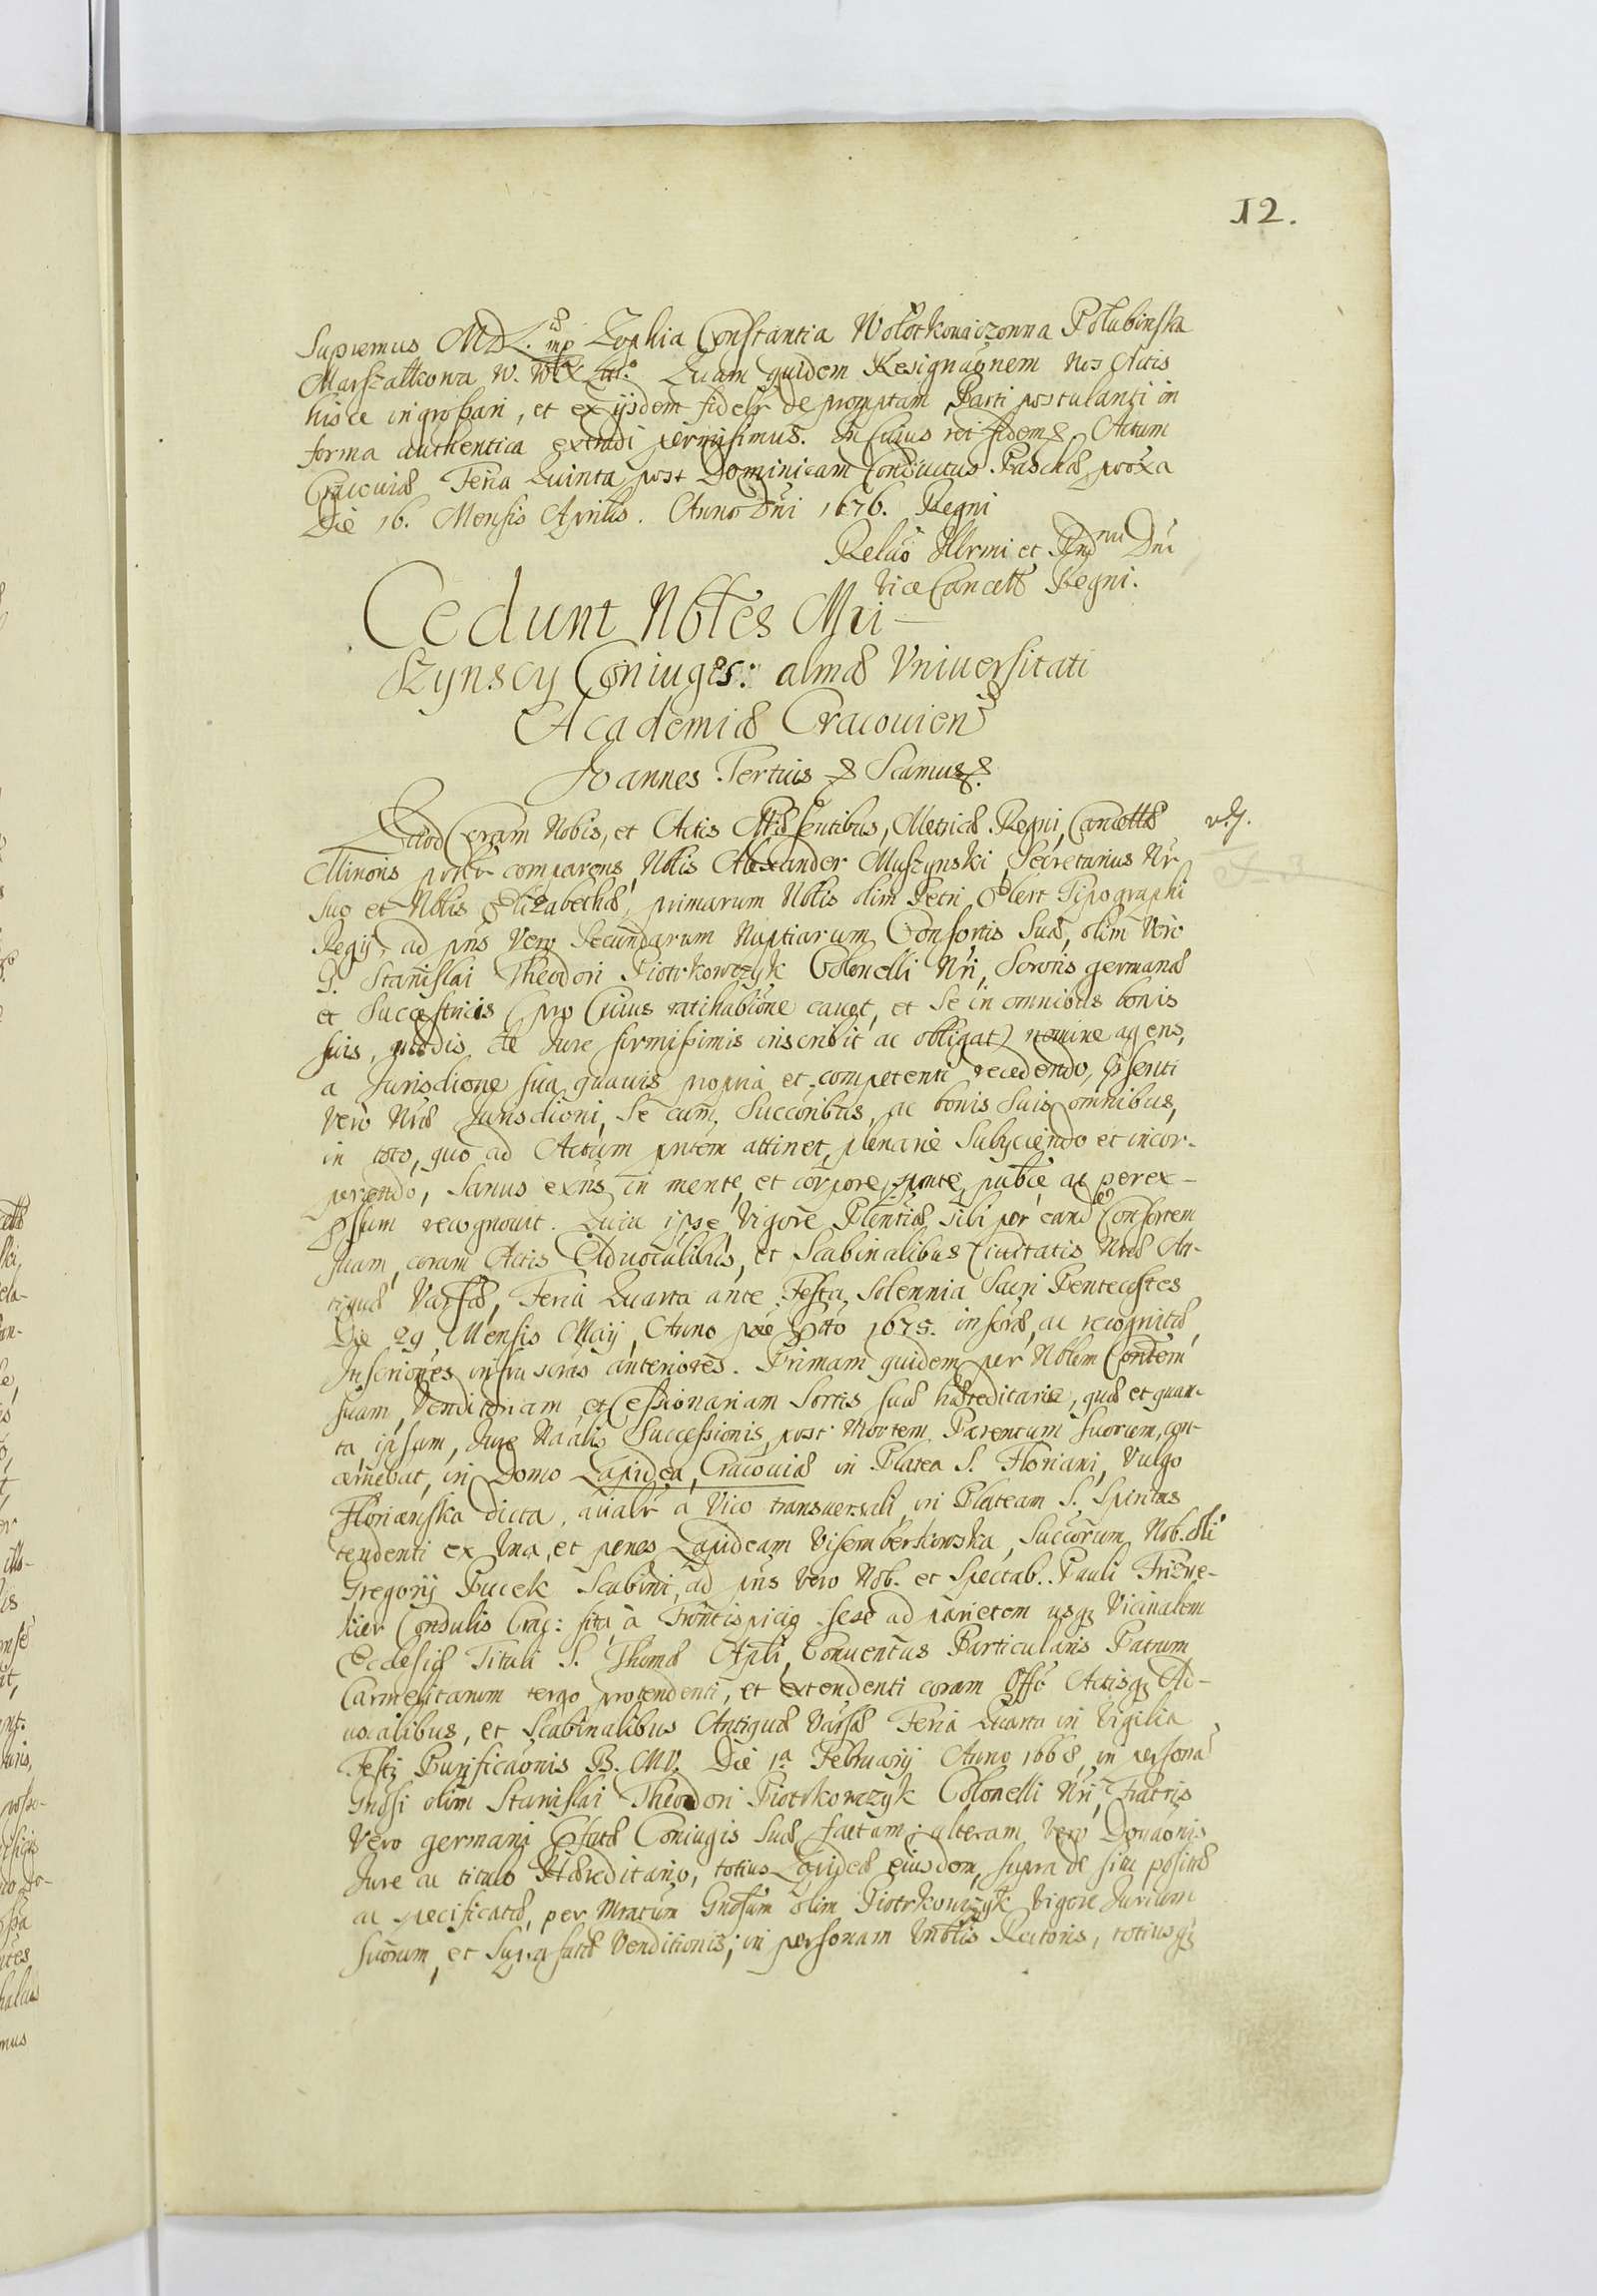 12.
Supremus MDL. mp Zophia Constantia Wołotkowiczonna Połubinska
Marszałkowa W. WX Litt. Quam quidem Resignaōnem nos Actis
hisce ingrossari, et ex ijsdem fidelr depromptam Parti postulanti in
forma authentica extradi permisimus. In Cuius rei fidem &. Actum
Cracouiæ Feria Quinta post Dominicam Conductus Paschæ proxa
Die 16. Mensis Aprilis. Anno Dni 1676. Regni
Relaō Illrmi et Rndmi Dni
ViceCancell Regni.
Cedunt Nobles Mu-
szynscy Coniuges: almæ Vniuersitati
Academiæ Cracouien
Joannes Tertius & Scimus &.
Quod Coram Nobis, et Actis Præsentibus, Metricæ Regni, Cancellæ
Minoris psonlr comparens Noblis Alexander Muszynski, Secretarius Nr
suo et Noblis Elizabethæ, primarum Noblis olim Petri Elert Tipographi
Regij, ad pns Vero Secundarum Nuptiarum Consortis Suæ, olim Vero
G. Stanislai Theodori Piotrkowczyk Colonelli Nri, Sororis germanæ
et Successtricis (pro Cuius ratihabione cauet, et Se in omnibus bonis
suis, modis de Jure firmissimis inscribit ac obligat) nomine agens,
a Jurisdione sua quauis propria et competenti recedendo, psenti
Vero Nræ Jurisdioni, Se cum Succoribus, ac bonis Suis omnibus,
in toto, quo ad Actum pntem attinet, plenarie Subijciendo et incor-
perendo, Sanus exns in mente, et corpore, sponte, publce ac per ex-
psum recognouit. Quia ipse Vigore Plentiæ sibi per eandem Consortem
suam, coram Actis Aduocalibus, et Scabinalibus Ciuitatis Nræ An-
tiquæ Varsæ, Feria Quarta ante Festa Solennia Sacri Pentecostes
Die 29 Mensis Maij, Anno pxe Ptto 1675. in feræ, ac recognitæ,
Inscriones infra scras anteriores. Primam quidem per Noblem Contem
suam, Venditoriam, et Cessionariam Sortis suæ hæreditariæ, quæ et quan-
ta ipsam, Jure Naalis Successionis, post Mortem Parentum suorum, con-
cernebat, in Domo Lapidea, Cracouiæ in Platea S. Floriani, Vulgo
Florianska dicta, aualr a Vico transuersali, in Plateam S. Spiritus
tendenti ex Vna, et penes Lapideam Visemberkowska, Succorum Nob. olim
Gregorij Pucek Scabini, ad pns Vero Nob. et Spectab. Pauli Frizne-
kier Consulis Crac: sita, a Frontispicio sese ad parietem usq Vicinalem
Ecclesiæ Tituli S. Thomæ Apli, Conuentus Particularis Patrum
Carmelitarum tergo protendenti, et extendenti coram Offo Actisq Ad-
uocalibus, et Scabinalibus Antiquæ Varsæ Feria Quarta in Vigilia
Festi Purificaonis B. M.V. Die 1a February Anno 1668, in persona
Gnosi olim Stanislai Theodori Piotrkowczyk Colonelli Nri, Fratris
Vero germani Psatæ Coniugis Suæ factam: alteram Vero Donaonis
Jure ac titulo Hæreditario, totius Lapideæ eiusdem, supra de situ positæ
ac specificatæ, per Mratum Gnosum olim Piotrkowczyk Vigore Jurium
suorum, et Supra satæ Venditionis; in personam Vnblis Rectoris, totiusq